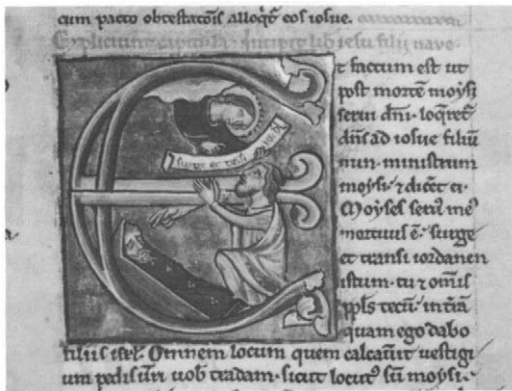 cum pacto obtestatōis alloq̄t̄ eos iosue.
Expliciunt capitula. incipit lib iesu filii nave.
t factum est ut
post mortē moysi
serui dn̄i. loq̄ret̄
dn̄s ad iosue filiū
nun. ministrum
moysi. ⁊ dicēt ei.
Moyses seru' me'
mortuus ē. surge
et transi iordanen
istum. tu ⁊ omīs
ppl̄s tecū. in t̄rā
quam ego dabo
filiis isrl̄. Omnem locum quem calcauit uestigi
um pedis ur̄i uob tradam. sicut locut' sū moysi.
surge et transi